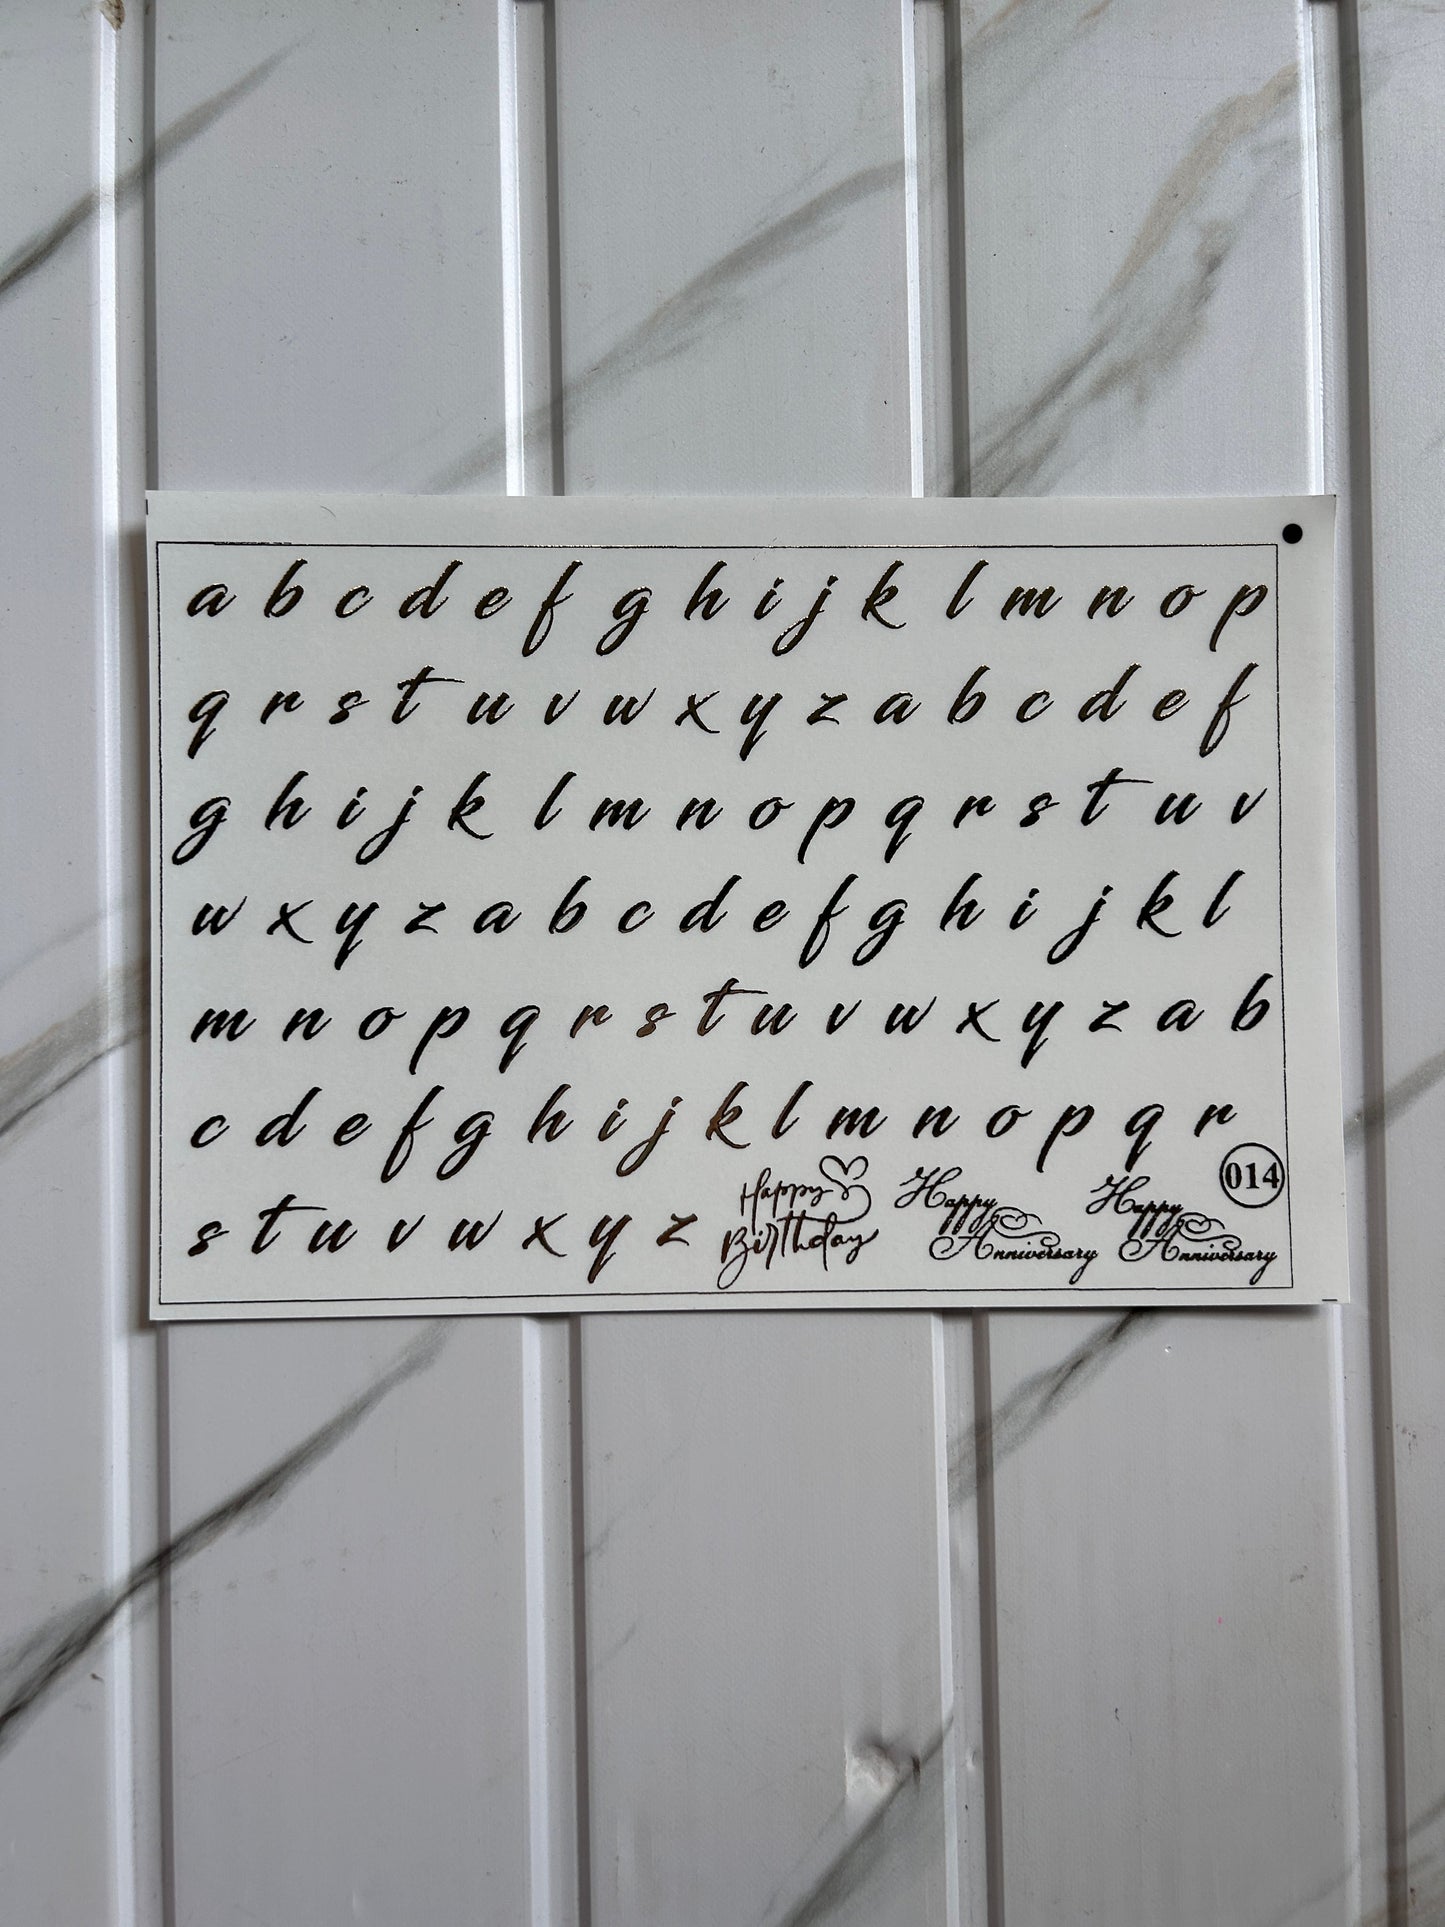 a b c d e f g h i j k l m n o p
q r s t u v w x y z a b c d e f
g h i j k l m n o p q r s t u v
w x y z a b c d e f g h i j k l
m n o p q r s t u v w x y z a b
c d e f g h i j k l m n o p q r
014
s t u v w x y z
Happy
Birthday
Happy
Anniversary
Happy
Anniversary